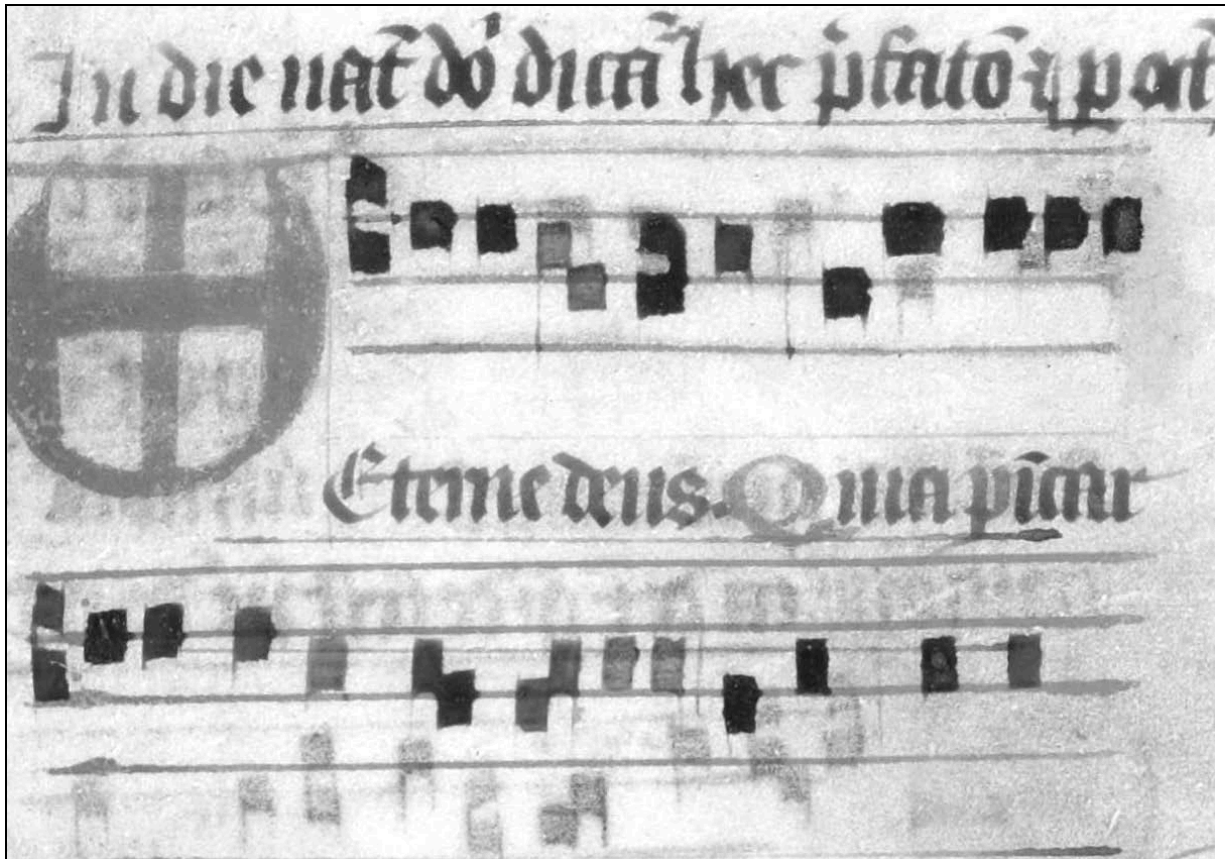 In die nat̄ do᷇ dicit̄ hec p̄fatō ⁊ p oct̄
Eterne deus. Quia p